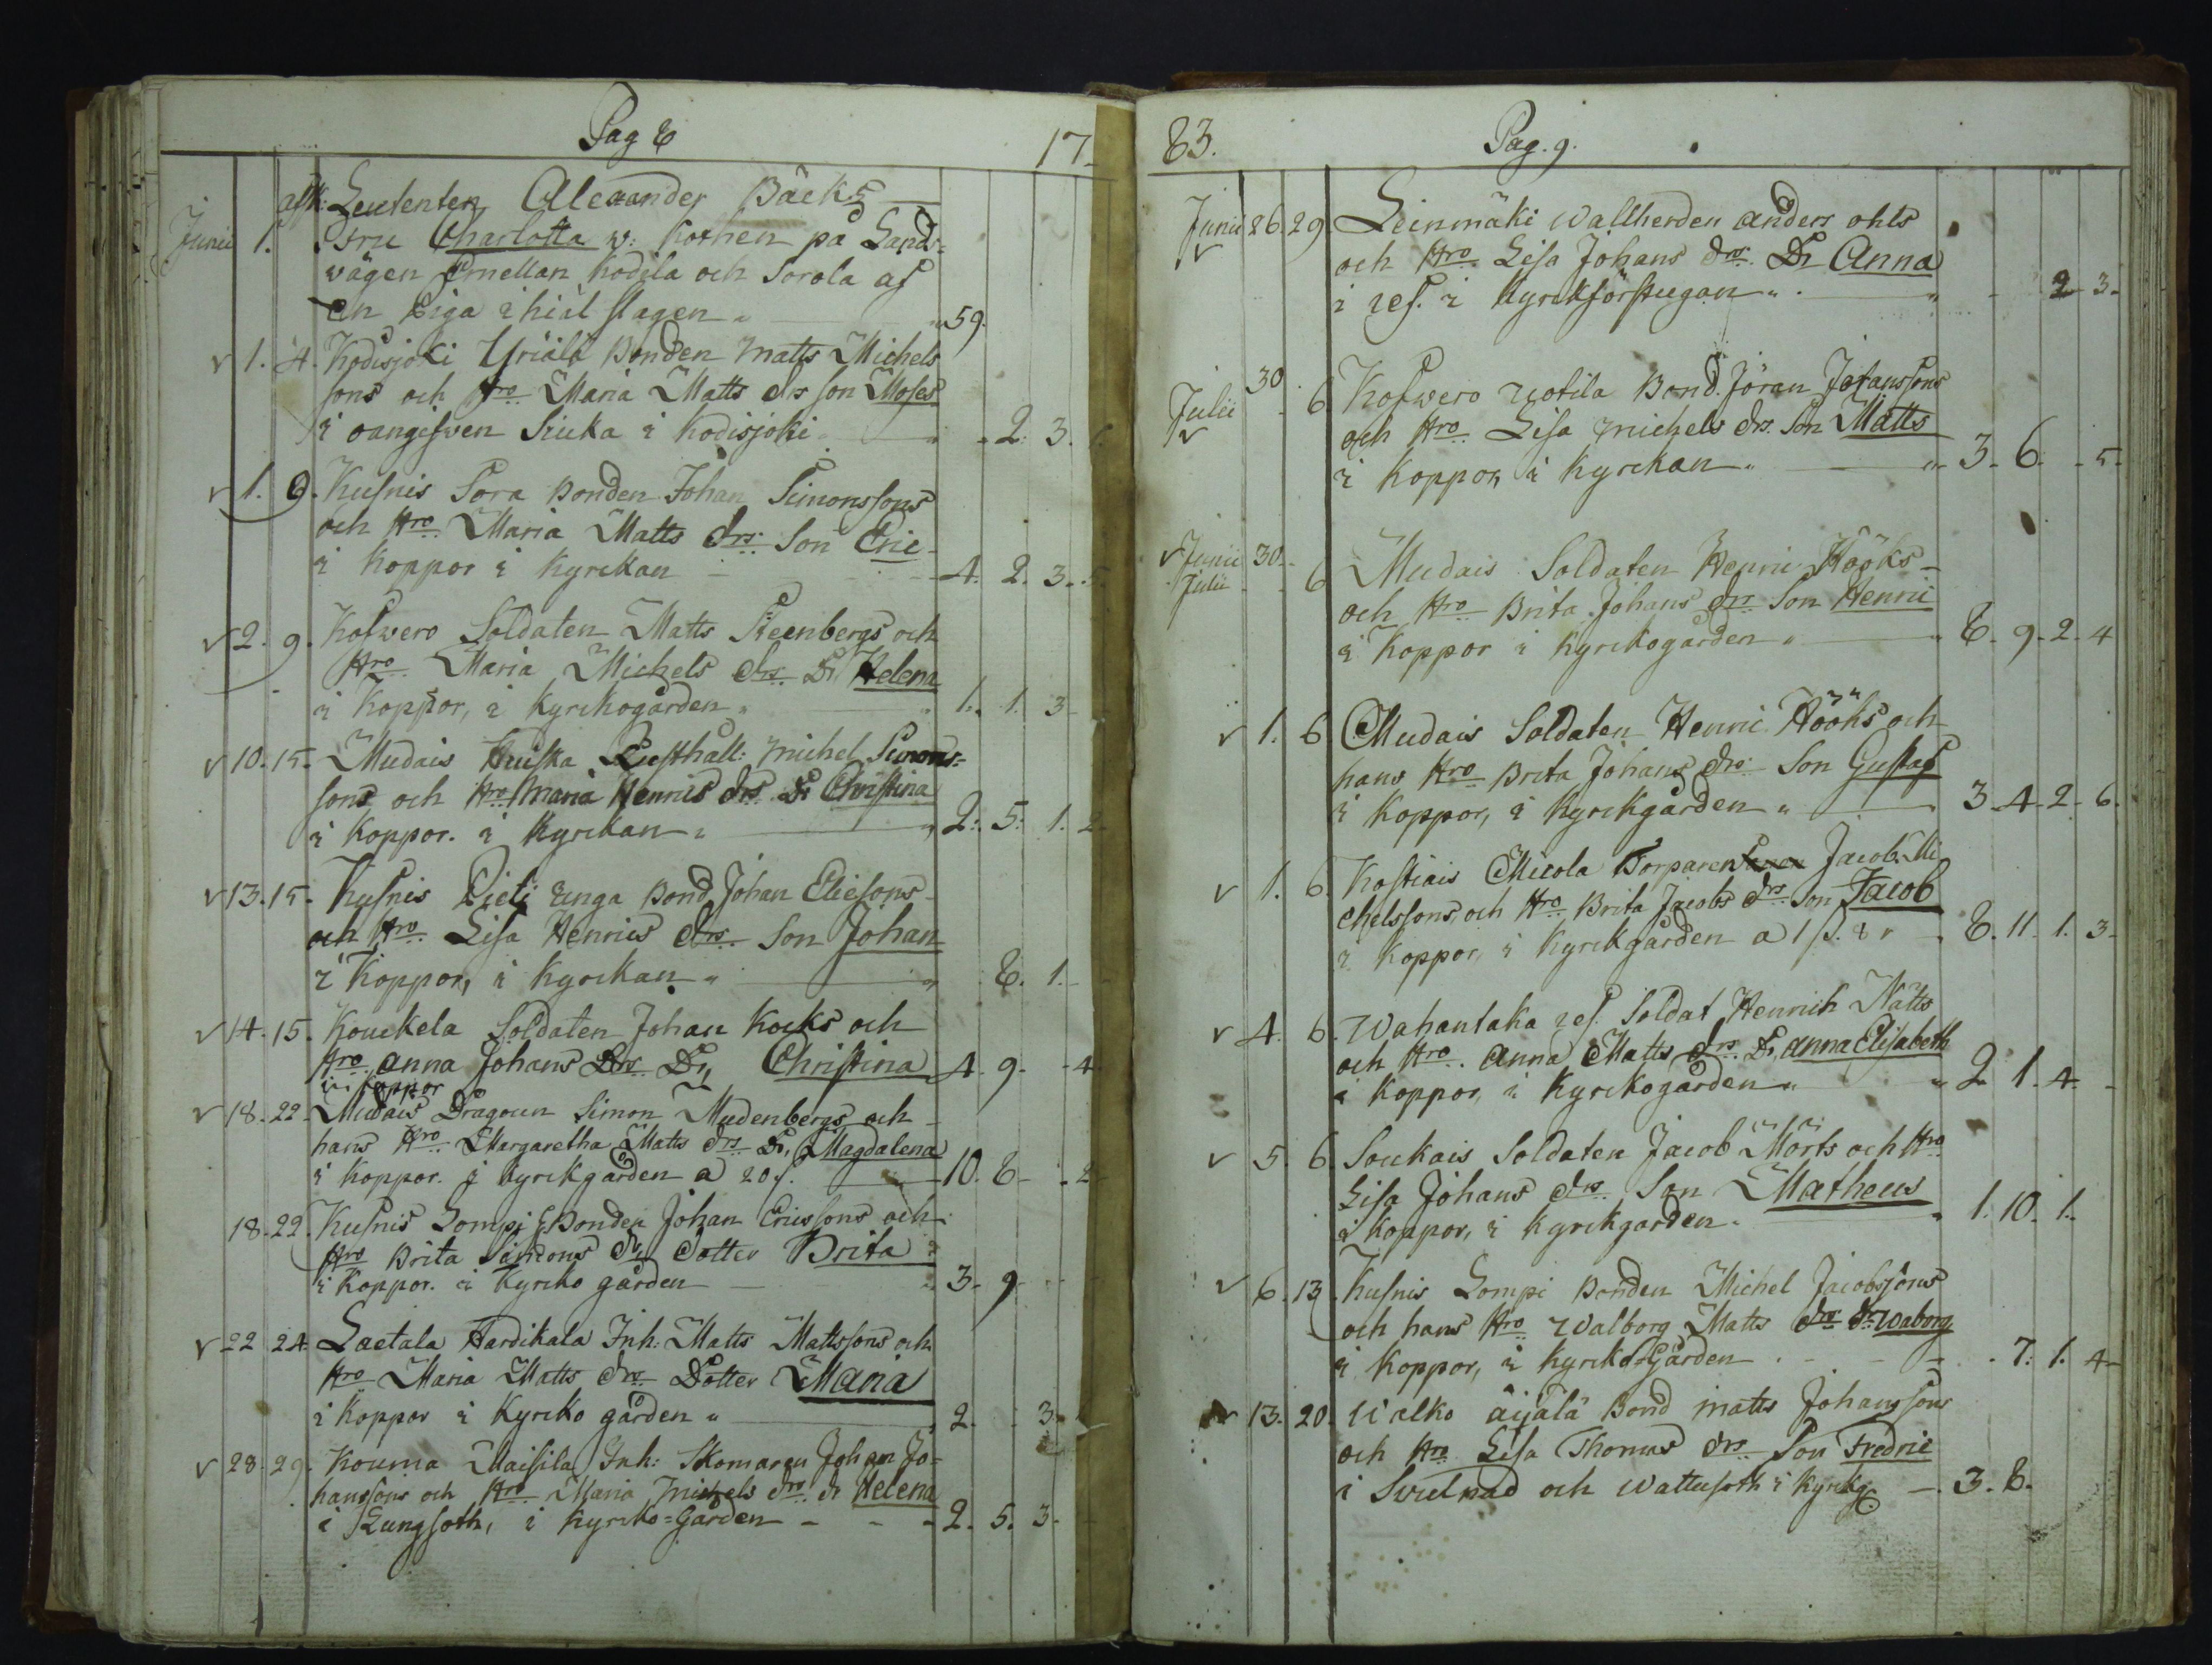 Pag 8 17
Junii 1. afsk: Leutenten Alexander Bäcks
Fru Charlotta v: Kothen på Lands-
vägen Emellan Kodila och Sorola af
en Piga ihiälslagen „ „ 59.
1. 4. Kodisjoki Yriälä Bonden Matts Michels
sons och Hro Maria Matts drs son Moses
i oangifwen Siuka i Kodisjoki - 2. 3.
1. 9. Kusnis Pora Bonden Johan Simonssons
och Hro Maria Matts drs Son Eric
i Koppor i Kyrckan - 4. 2. 3. 5
2. 9. Kofwero Soldaten Matts Steenbergs och
Hro Maria Michels drs Dr Helena
i Koppor, i Kyrckogården „ 1. 1. 3
10. 15. Mudais Rusthåll: Michel Simons-
sons och Hro Maria Henrics drs Dr Christina
i Koppor. i Kyrckan „ „ 2. 5. 1. 2
13. 15. Kusnis Pieti Unga Bond Johan Eliesons
och Hro Lisa Henrics drs Son Johan
i Koppor, i Kyrckan „ „ 8. 1.
14. 15. Kouckela Soldaten Johan Kocks och
Hro Anna Johans Drs Dr, Christina 4. 9. - 4
i Koppor
18. 22. Mudais Dragoun Simon Mudenbergs och
hans Hro Margaretha Matts drs Dr, Magdalena
i Koppor. i Kyrckgården a 20 s. 10. 8 - 2
18. 22. Kusnis Lompi Bonden Johan Ericssons och
Hro Brita Simons drs dotter Brita
i Koppor. i Kyrcko gården 3. 9
22 24 Laetala Hardikala Inh: Matts Mattssons och
Hro Maria Matts drs Dotter Maria
i Koppor i Kyrcko gården „ 2. 3.
28. 29. Kouma Maisila Inh: Skomaren Johan Jo-
hanssons och Hro Maria Michels drs dr Helena
i Lungsoth, i Kyrcko-Gården - - - 2. 5. 3
83. Pag. 9.
Junii 26. 29 Leinmäki Wallherden Anders ohls
och Hro Lisa Johans drs Dr Anna
i ref. i Kyrckförstugan „ 2 3.
30. Julii 6 Kofwero Uotila Bond. Jöran Johanssons
och Hro Lisa Michels drs Son Matts
i Koppor, i Kyrckan „ „ 3. 6. - 5.
Junii 30.
Julii 6 Mudais Soldaten Henric Hööks
och Hro Brita Johans drs Son Henric
i Koppor i Kyrckogården „ „ 8. 9. 2. 4
1. 6 Mudais Soldaten Henric Hööks och
hans Hro Brita Johans drs Son Gustaf
i Koppor, i Kyrckgården „ 3. 4. 2. 6.
1. 6. Kostiais Micola Torparen Jacob Mi
chelssons, och Hro Brita Jacobs drs Son Jacob
i Koppor, i Kyrckgården a 1 s. 8 r 8. 11. 1. 3.
4. 6. Wahantaka ref. Soldat Henrich Natts
och Hro Anna Matts drs Dr, Anna Elisabeth
i Koppor, i Kyrckogården „ „ 2. 1. 4.
5. 6. Soukais Soldaten Jacob Mörts och Hro
Lisa Johans drs Son Matheus
i Koppor, i Kyrckgården. „ 1. 10. 1.
6. 13. Kusnis Lompi Bonden Michel Jacobssons
och hans Hro Walborg Matts drs dr Waborg
i Koppor, i Kyrcko-Gården - - - 7. 1. 4
13. 20. Valko äijälä Bond Matts Johanssons
och Hro Lisa Thomas drs Son Fredric
i Swulnad och Wattusoth i Kyrckg - 3. 8.